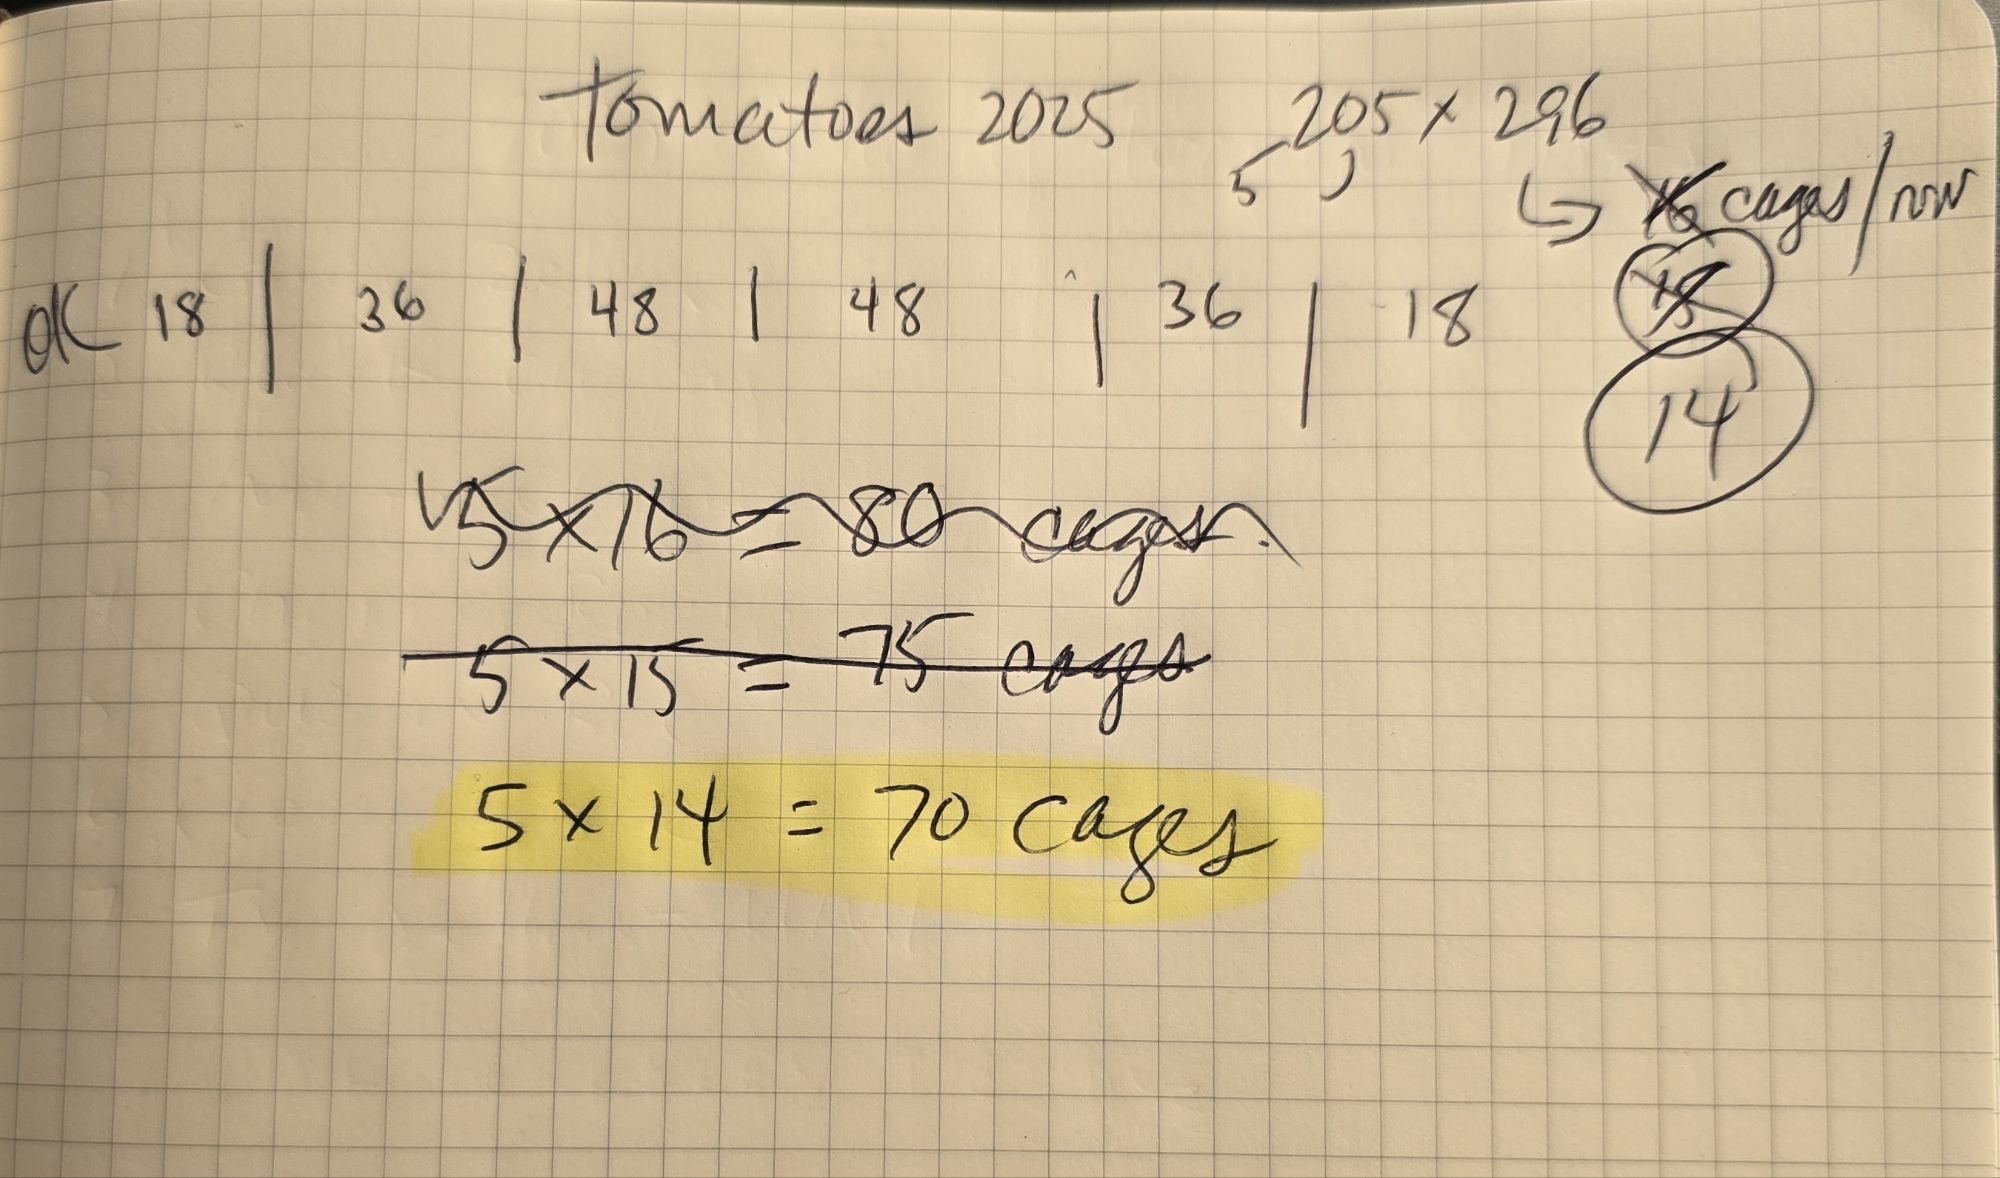 Tomatoes 2025 205 x 296
5
16 cages/row
OK 18 | 36 | 48 | 48 | 36 | 18
15
14
5 x 16 = 80 cages.
5 x 15 = 75 cages
5 x 14 = 70 cages